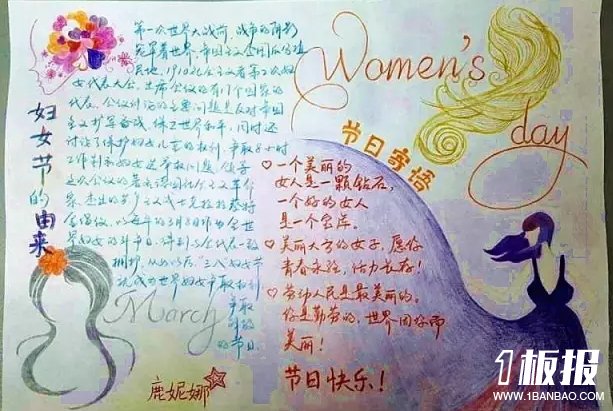 妇女节的由来
第一次世界大战前,战争的阴影
笼罩着世界,帝国主义企图瓜分殖
民地,1910年
女代表大会,出席会议的有17个国家的
代表,会议讨论的主要问题是反对帝国
主义扩军备战,保卫世界和平,同时还
讨论了保护妇女儿童的权利,争取8小时
工作制和妇女选举权问题,领导
这次会议的著名德国社会主义革命
家、杰出的
倡议,以每年的3月8日作为全世
界妇女的斗争日,得到与会代表一致
拥护,从此以后"三八"妇女节
就成为世界妇女争取权利
争取
解放
的节日
March
鹿妮娜
Women's
day
节日寄语
一个美丽的
女人是一颗钻石,
一个好的女人
是一个宝库。
美丽大方的女子,愿你
青春永驻,活力长存!
劳动人民是最美丽的。
你是勤劳的,世界因你而
美丽!
节日快乐!
1板报
WWW.1BANBAO.COM